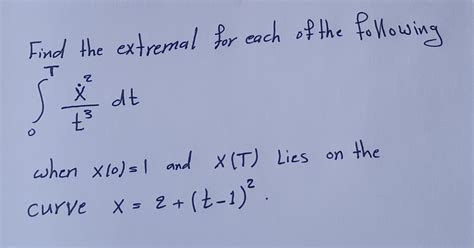 Find the extremal for each of the following
∫₀ᵀ ẋ²/t³ dt
when x(0)=1 and X(T) Lies on the
curve x = 2 + (t-1)².